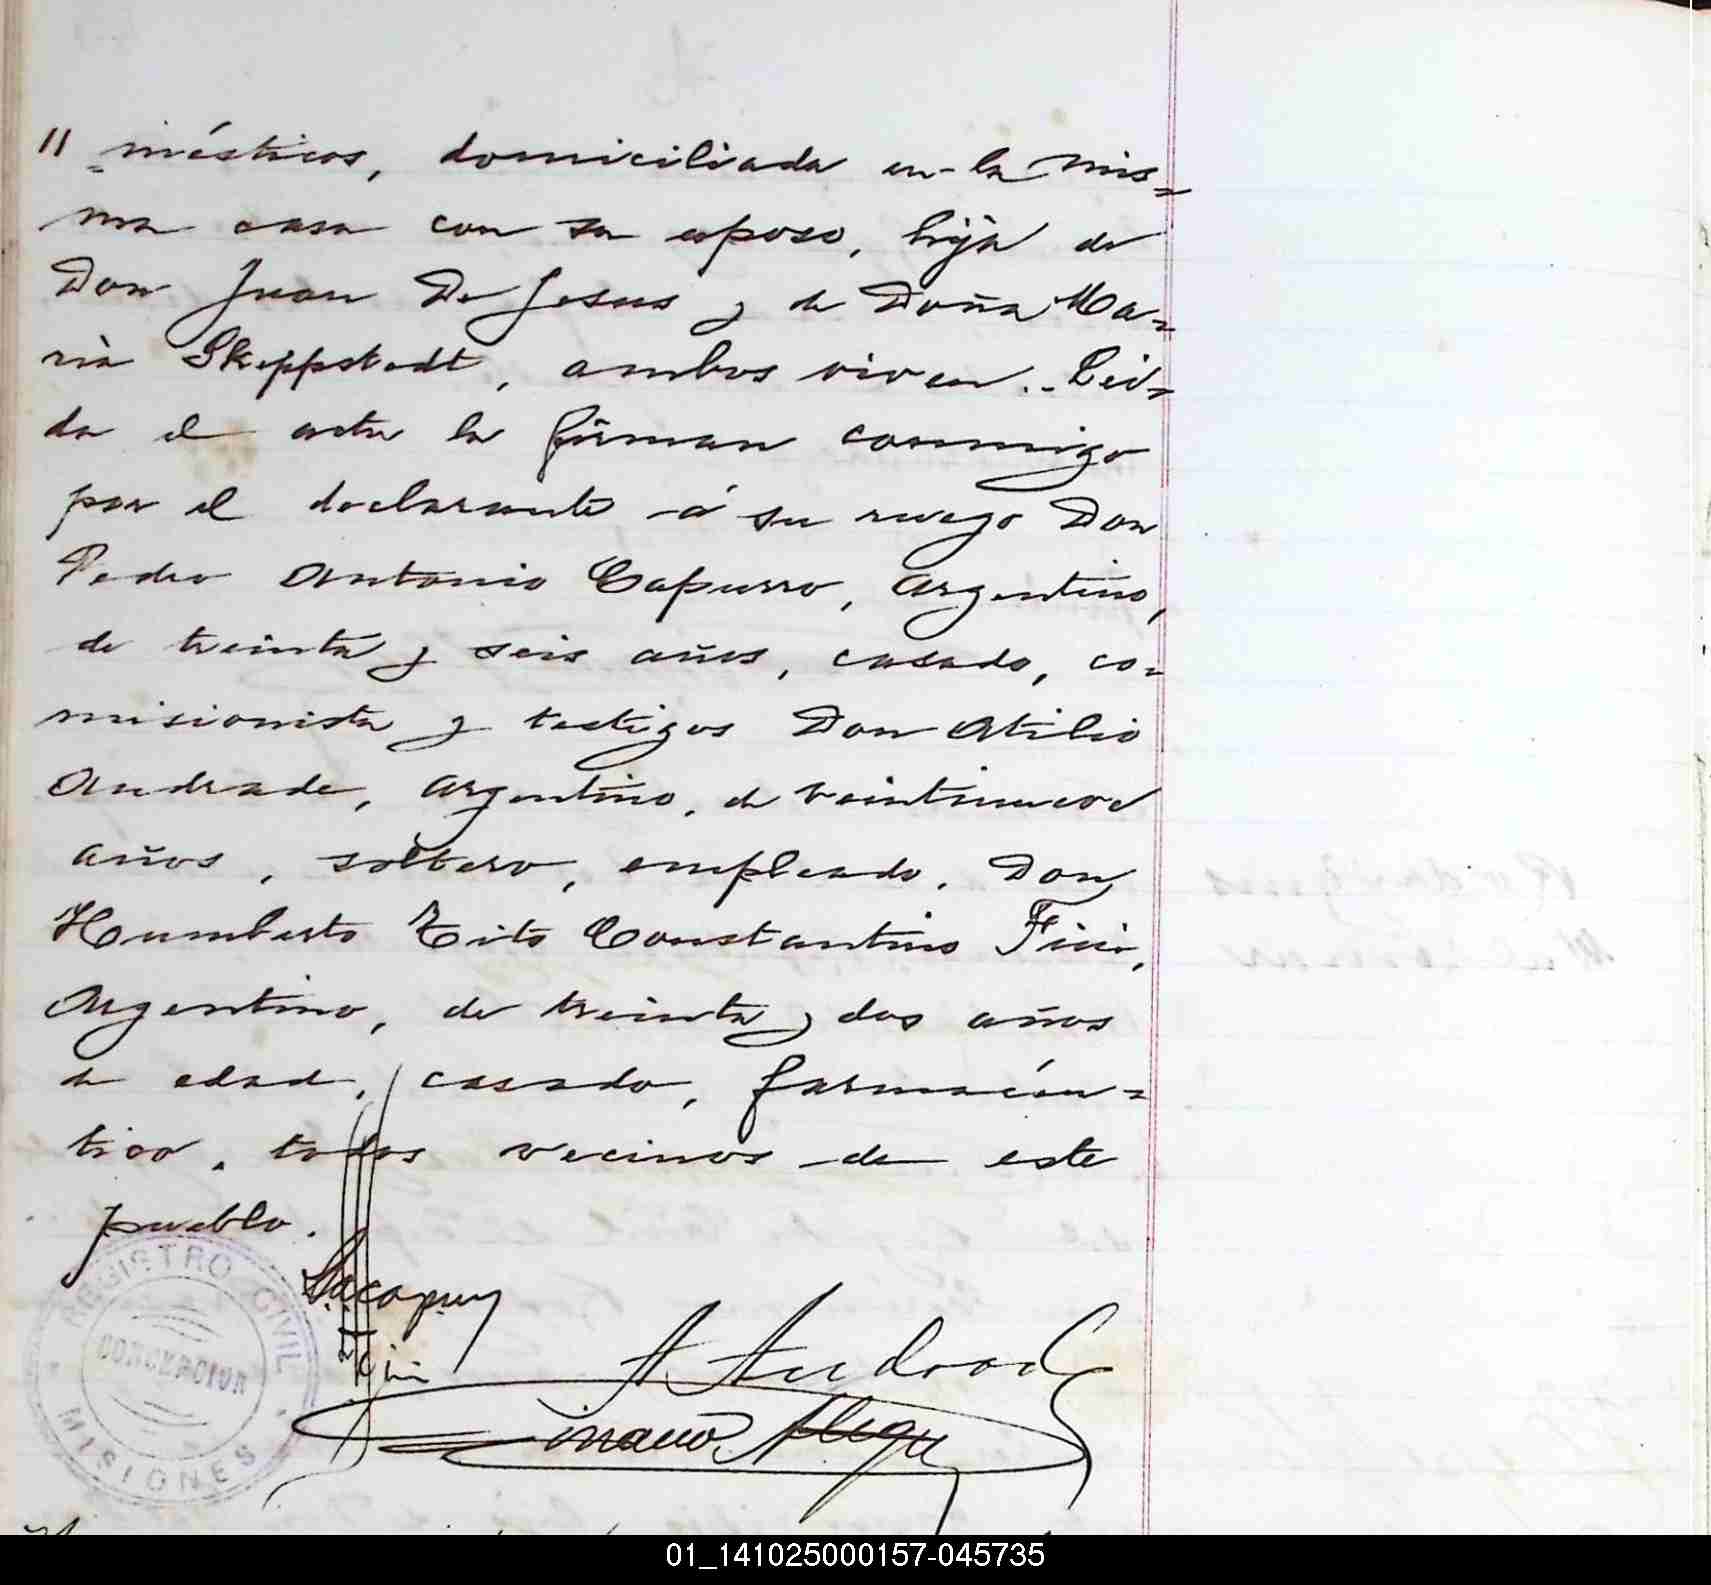 11 mésticos, domiciliada en la mis=
ma casa con su esposo, hija de
Don Juan De Jesus y de Doña Ma=
ria Skeppstedt, ambos viven.. Leí=
da el acta la firman conmigo
por el declarante á su ruego Don
Pedro Antonio Capurro, Argentino,
de treinta y seis años, casado, co=
misionista y testigos Don Atilio
Andrade, argentino, de veintinueve
años, soltero, empleado, Don
Humberto Tito Constantino Fini,
Argentino, de treinta y dos años
de edad, casado, farmacéu=
tico, todos vecinos de este
pueblo.
REGISTRO CIVIL
CONCEPCION
MISIONES
A Andrade
01_141025000157-045735